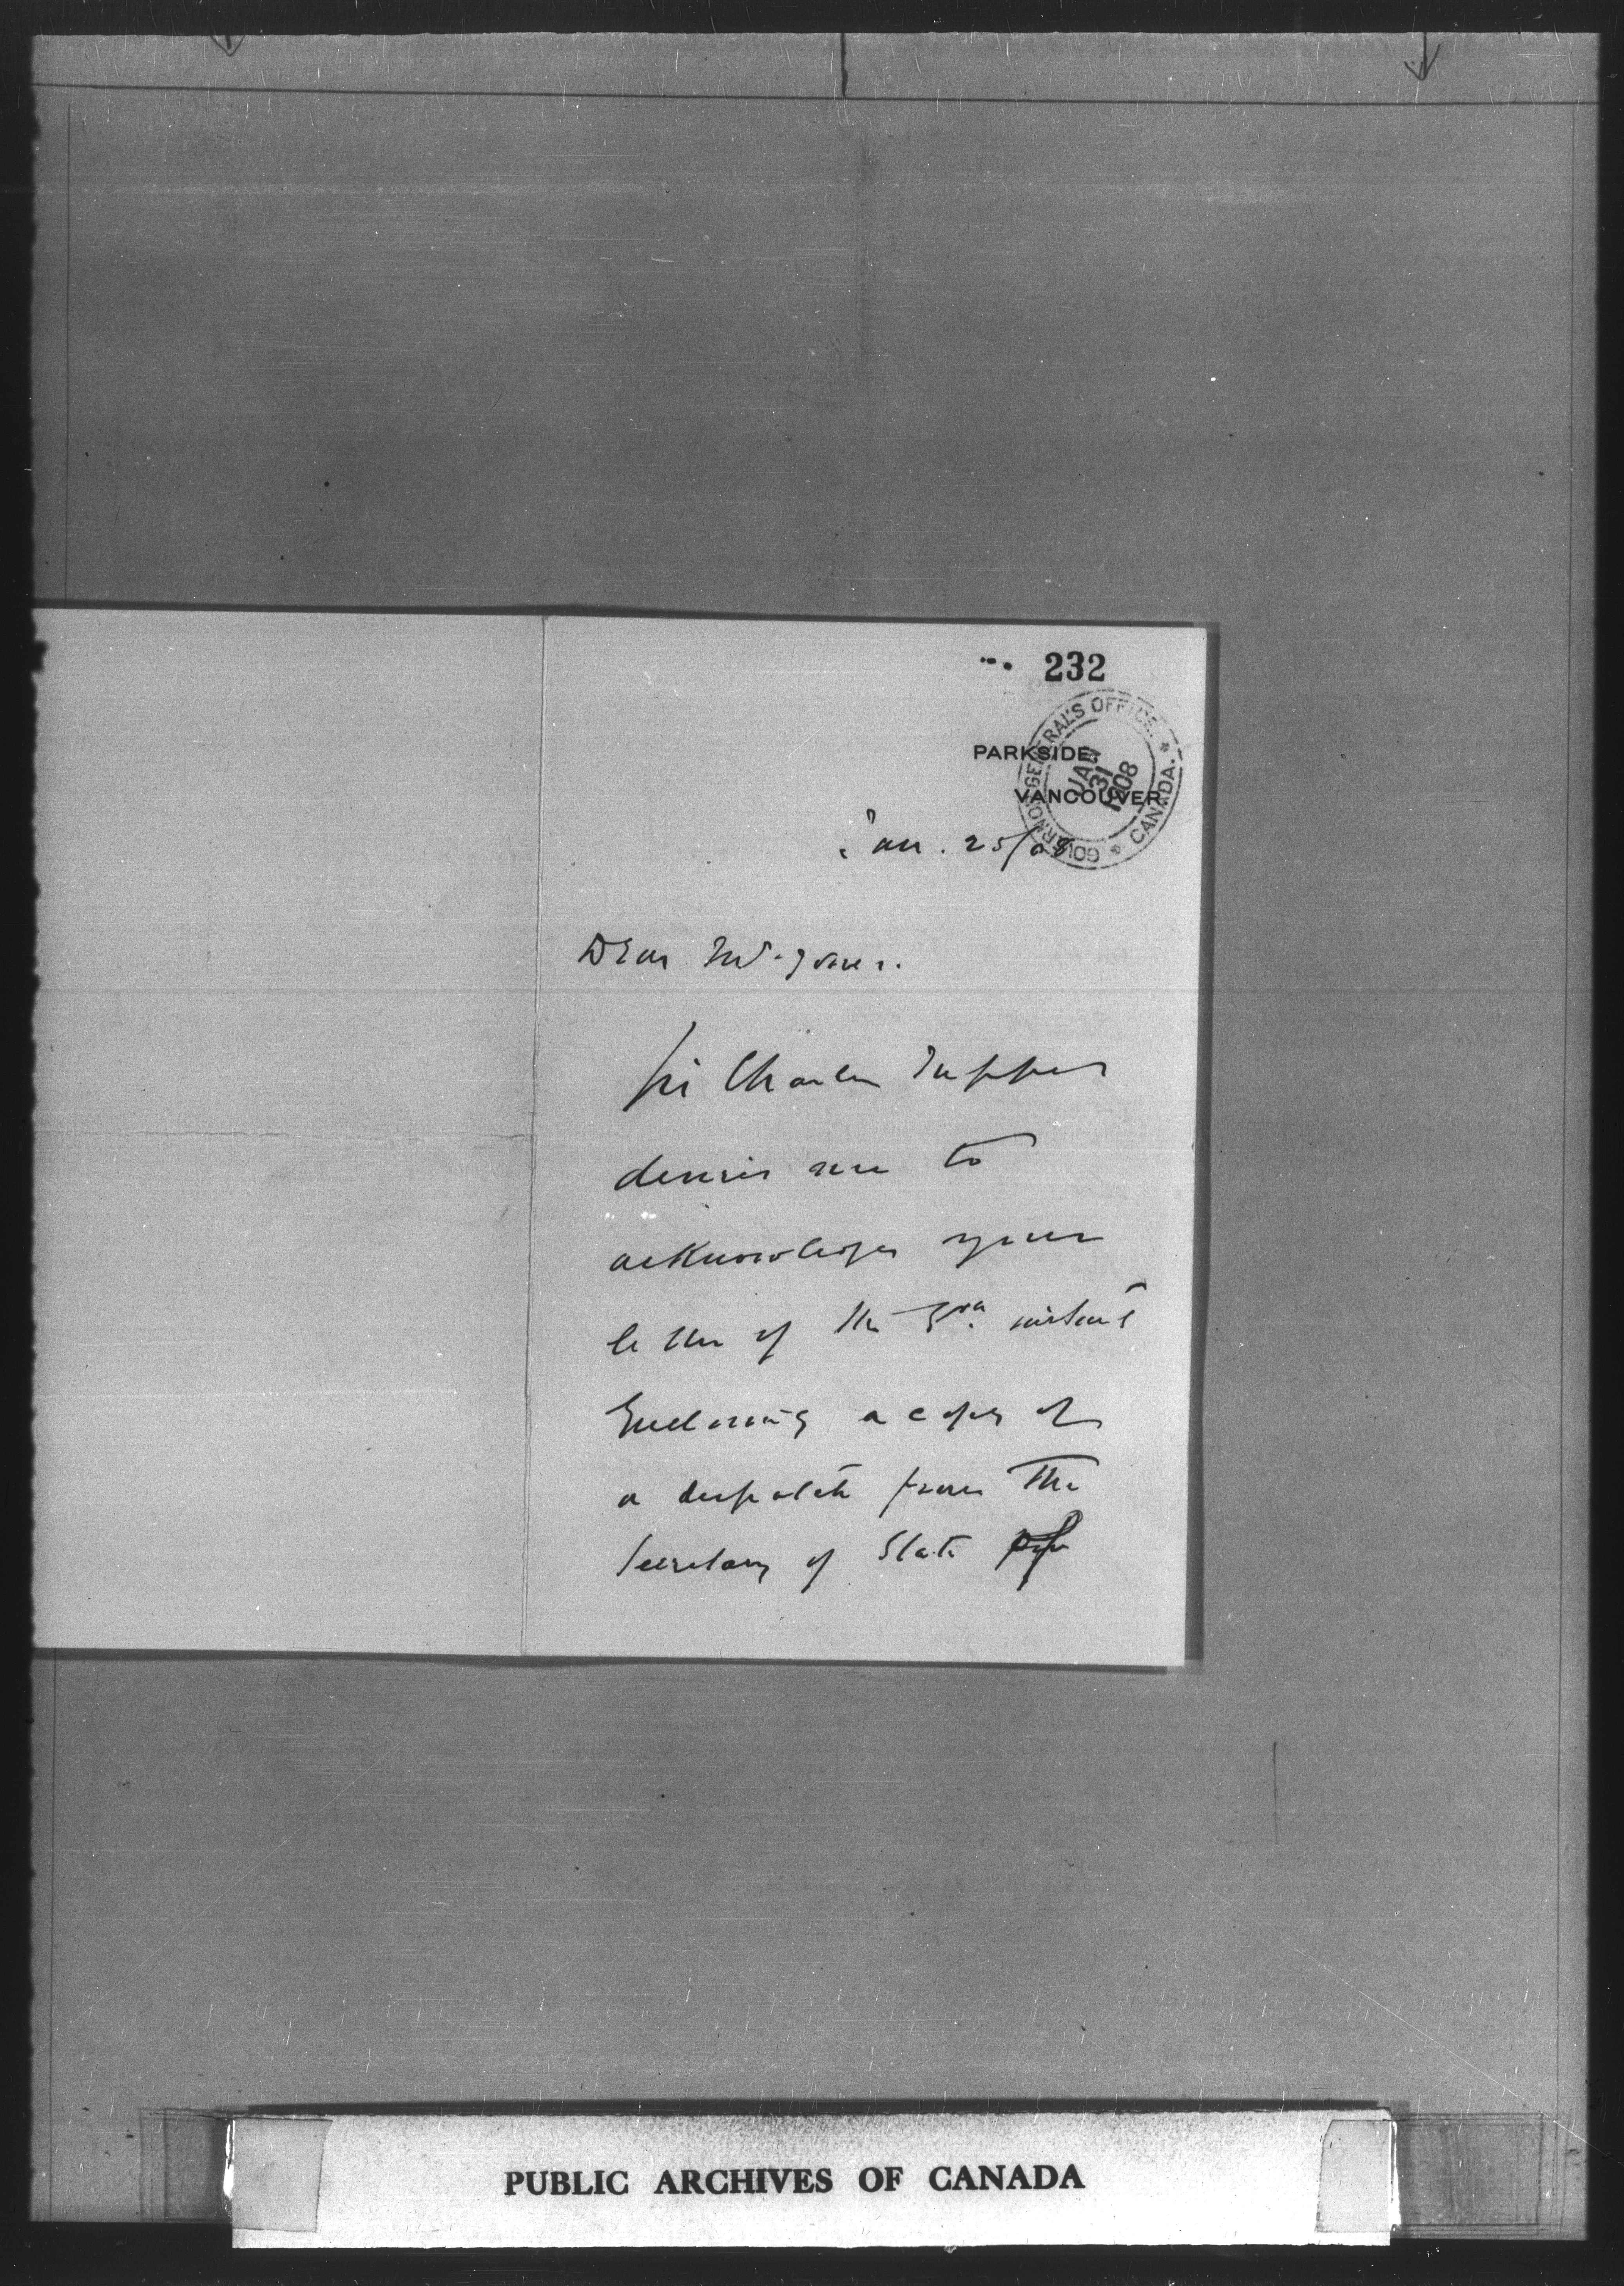 232
PARKSIDE
VANCOUVER
GOVERNOR GENERAL'S OFFICE. * CANADA. *
JAN 31 1908
Jan. 25/08
Dear Mr. Jones.
Sir Charles Tupper
desires me to
acknowledge your
letter of the 3rd. instant
Enclosing a copy of
a despatch from the
Secretary of State
PUBLIC ARCHIVES OF CANADA